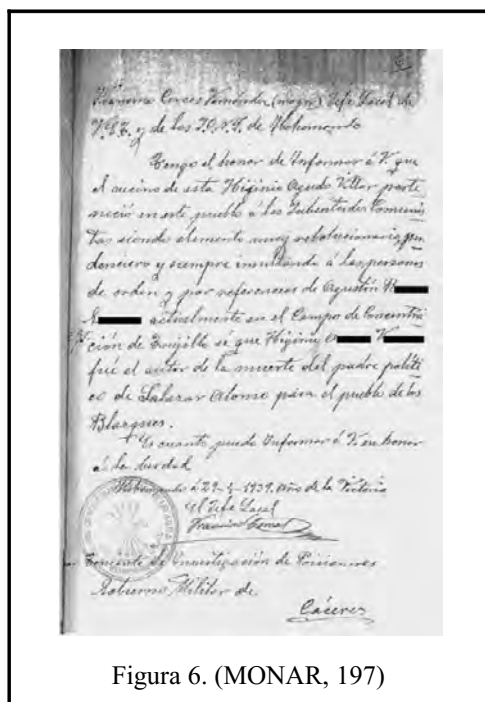 Francisco Correas Fernández (mayor) Jefe Local de
F.E.T. y de las J.O.N.S. de
Tengo el honor de Informar á V. que
el vecino de esta Higinio Agudo Villar perte
neció en este pueblo á las Jubentudes Comunis
tas siendo elemento muy rebolucionario, pen
denciero y siempre insultando á las personas
de orden y por referencias de Agustin R
S actualmente en el Campo de Concentra
ción de Trujillo se que Higinio A V
fué el autor de la muerte del padre políti
co de Salazar Alonso para el pueblo de los
Blazques.
Es cuanto puedo Informar á V. en honor
á la berdad
á 29-4-1939. Año de la Victoria
El Jefe Local
Comente de Investigación de Prisioneros
Gobierno Militar de
Cáceres
Figura 6. (MONAR, 197)